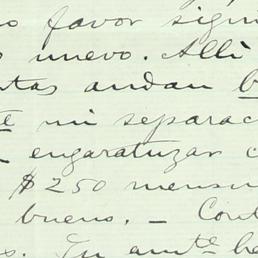 o favor sign
o nuevo. Allí
ntas andan b
te mi separac
n engaratuzar c
$250 mensu
bueno. — Cont
s. Tu amte he